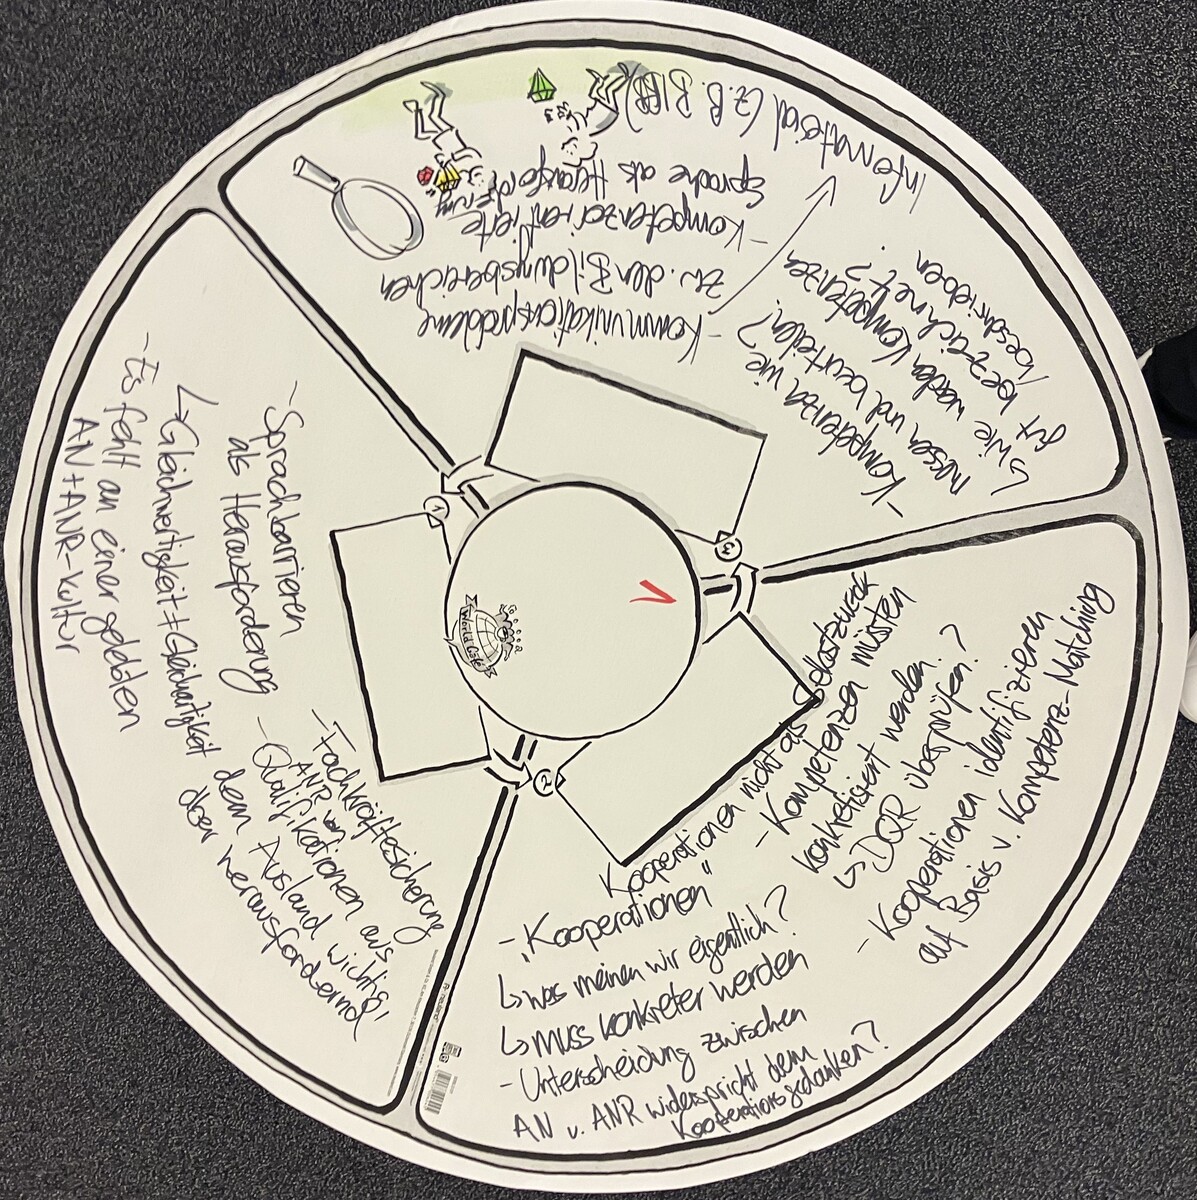 World Café
1
- Sprachbarrieren
als Herausforderung
↳ Gleichwertigkeit ≠ Gleichartigkeit
- Es fehlt an einer gelebten
AN + ANR-Kultur
- Fachkräftesicherung
ANR von
- Qualifikationen aus
dem Ausland wichtig,
aber herausfordernd
2
Kooperationen nicht als Selbstzweck
- „Kooperationen"
↳ was meinen wir eigentlich?
↳ muss konkreter werden
- Unterscheidung zwischen
AN v. ANR widerspricht dem
Kooperationsgedanken?
- Kompetenzen müssten
konkretisiert werden
↳ DQR überprüfen?
- Kooperationen identifizieren
auf Basis v. Kompetenz-Matching
3
- Kompetenzen wie
messen und beurteilen?
↳ Wie werden Kompetenzen
gut bezeichnet?
beschrieben
- Kommunikationsprobleme
zw. den Bildungsbereichen
- Kompetenzorientierte
Sprache als Herausforderung
Infomaterial (z.B. BIBB)